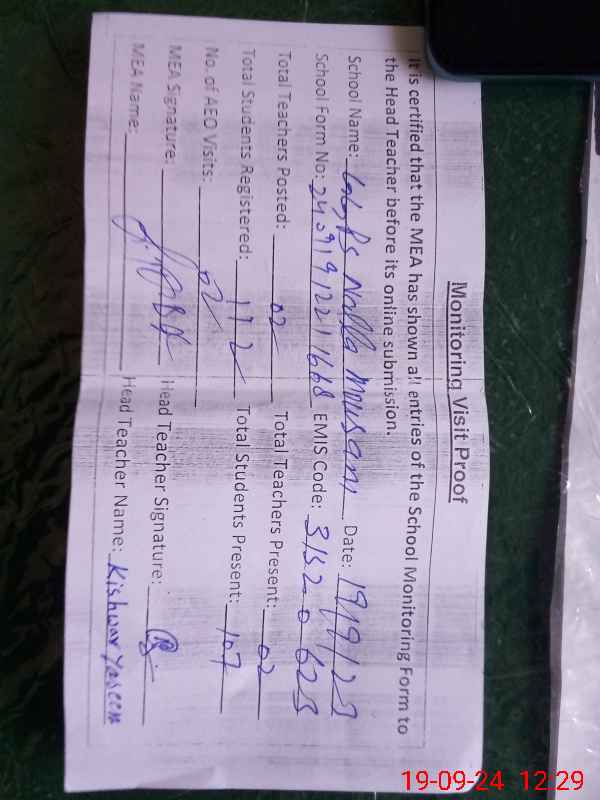 Monitoring Visit Proof
It is certified that the MEA has shown all entries of the School Monitoring Form to
the Head Teacher before its online submission.
School Name: Ps Nalla Mousani Date: 19/9/2
School Form No: EMIS Code: 31320625
Total Teachers Posted: 02 Total Teachers Present: 02
Total Students Registered: 112 Total Students Present: 107
No. of AEO Visits: 02
MEA Signature: Head Teacher Signature:
MEA Name: Head Teacher Name: Kishwar Yaseen
19-09-24 12:29